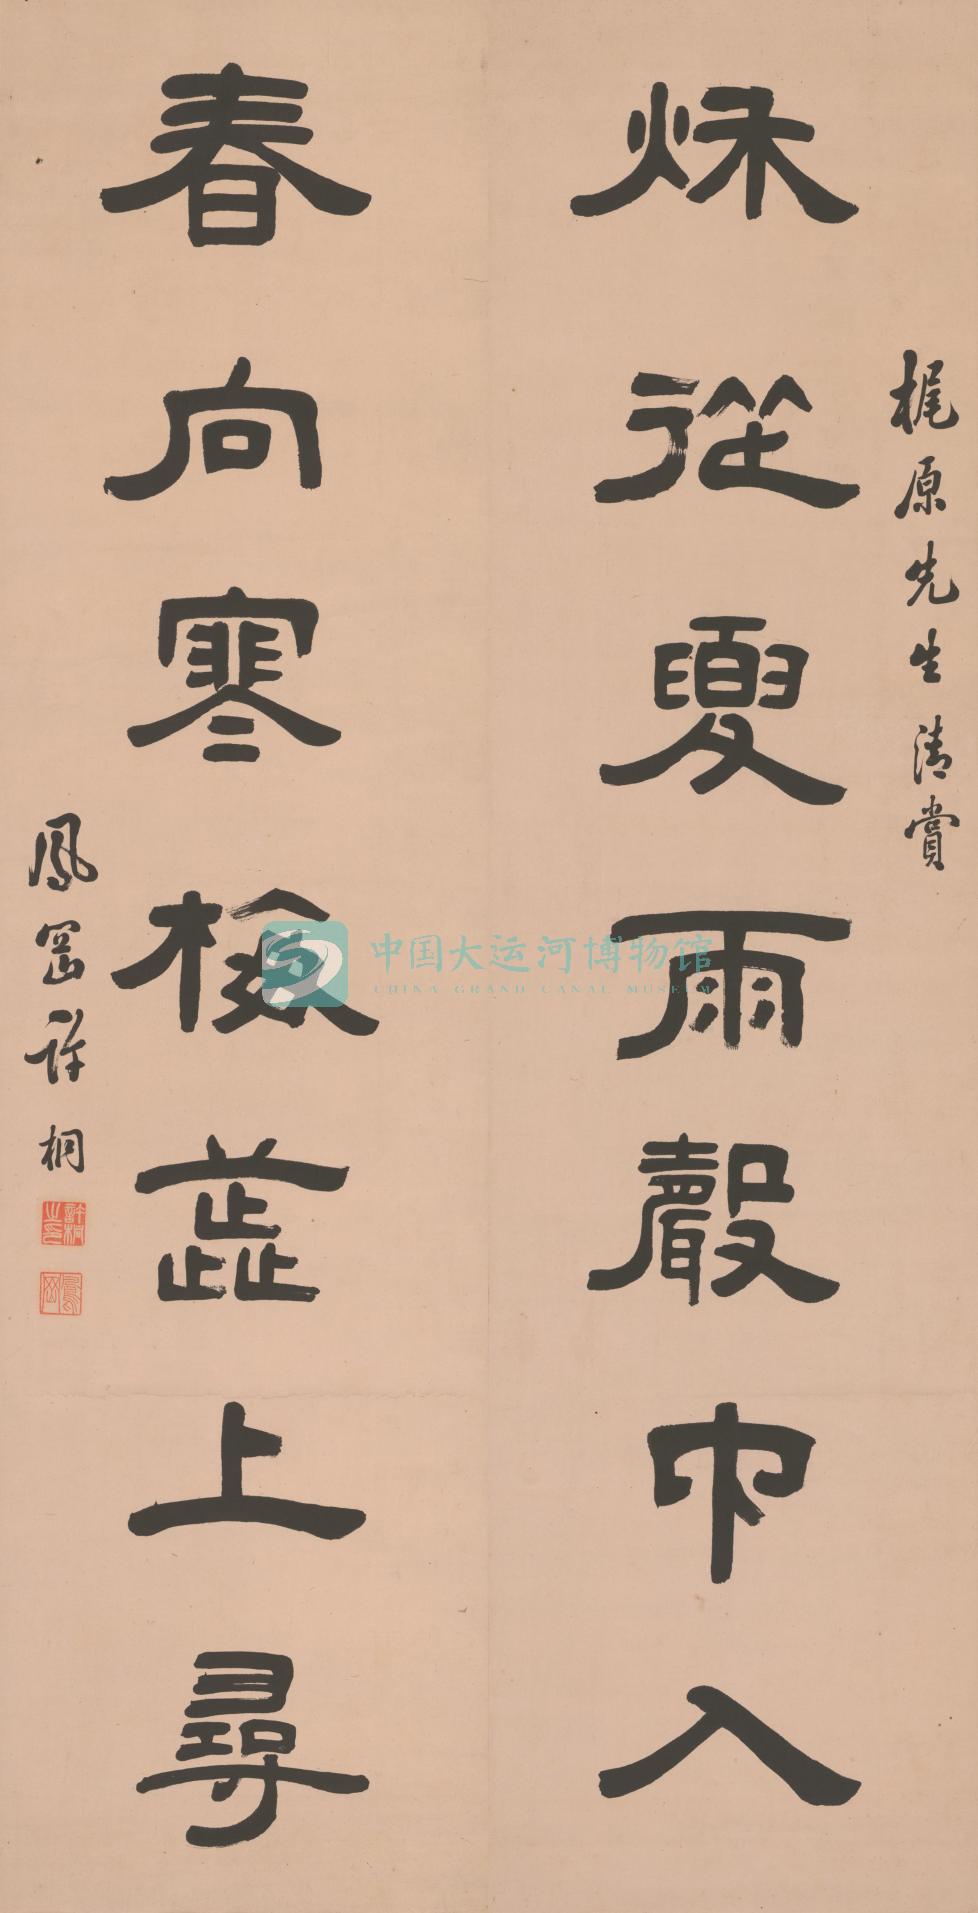 梶原先生清賞
秌從夏雨聲中入
春向寒梅蕋上尋
鳳岡許桐
許桐之印
鳳岡
中国大运河博物馆
CHINA GRAND CANAL MUSEUM